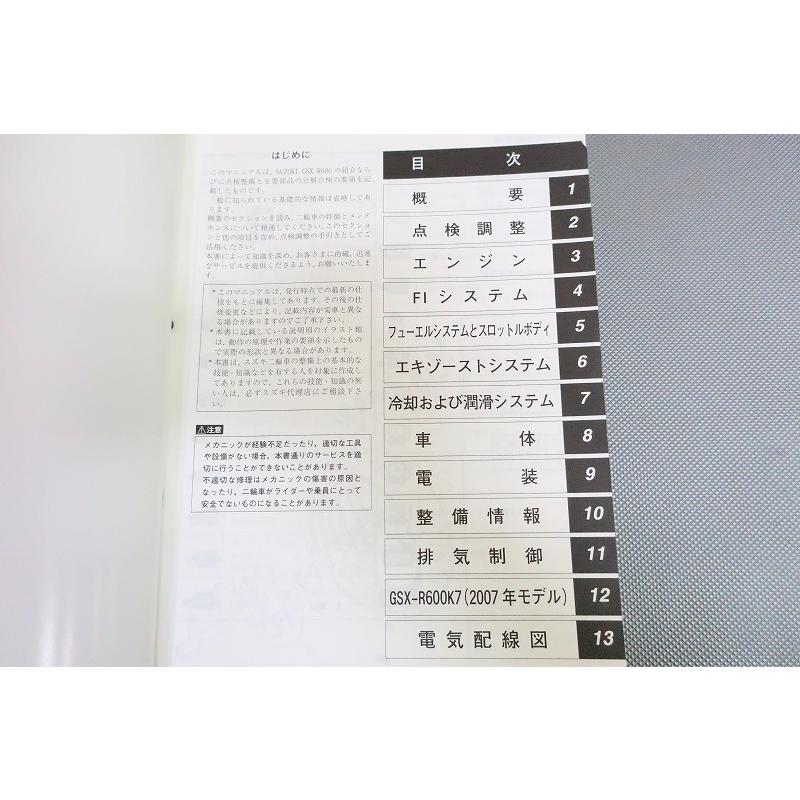 はじめに
このマニュアルは、SUZUKI GSX-R600の紹介なら
びに点検整備と主要部品の分解点検の要領を記
載したものです。
一般に知られている基礎的な情報は省略してあ
ります。
概要のセクションを読み、二輪車の特徴とメンテ
ナンスについて精通してください。このセクショ
ンと他の項目を含め、点検調整の手引きとしてご
活用ください。
本書によって知識を深め、お客さまに的確、迅速
なサービスを提供くださるよう、お願いいたしま
す。
*このマニュアルは、発行時点での最新の仕
様をもとに編集してあります。その後の仕
様変更などにより、記載内容が実車と異な
る場合がありますのでご了承下さい。
*本書に記載している説明用のイラスト類
は、動作の原理や作業の要領を示したもの
で実際の形状と異なる場合があります。
*本書は、スズキ二輪車の整備上の基本的な
技能・知識などを有する人を対象に作成し
てありますので、これらの技能・知識の無
い人は、必ずスズキ代理店にご相談下さ
い。
⚠注意
メカニックが経験不足だったり、適切な工具
や設備がない場合、本書通りのサービスを適
切に行うことができないことがあります。
不適切な修理はメカニックの傷害の原因と
なったり、二輪車がライダーや乗員にとって
安全でないものになることがあります。
目次
概要 1
点検調整 2
エンジン 3
FIシステム 4
フューエルシステムとスロットルボディ 5
エキゾーストシステム 6
冷却および潤滑システム 7
車体 8
電装 9
整備情報 10
排気制御 11
GSX-R600K7(2007年モデル) 12
電気配線図 13